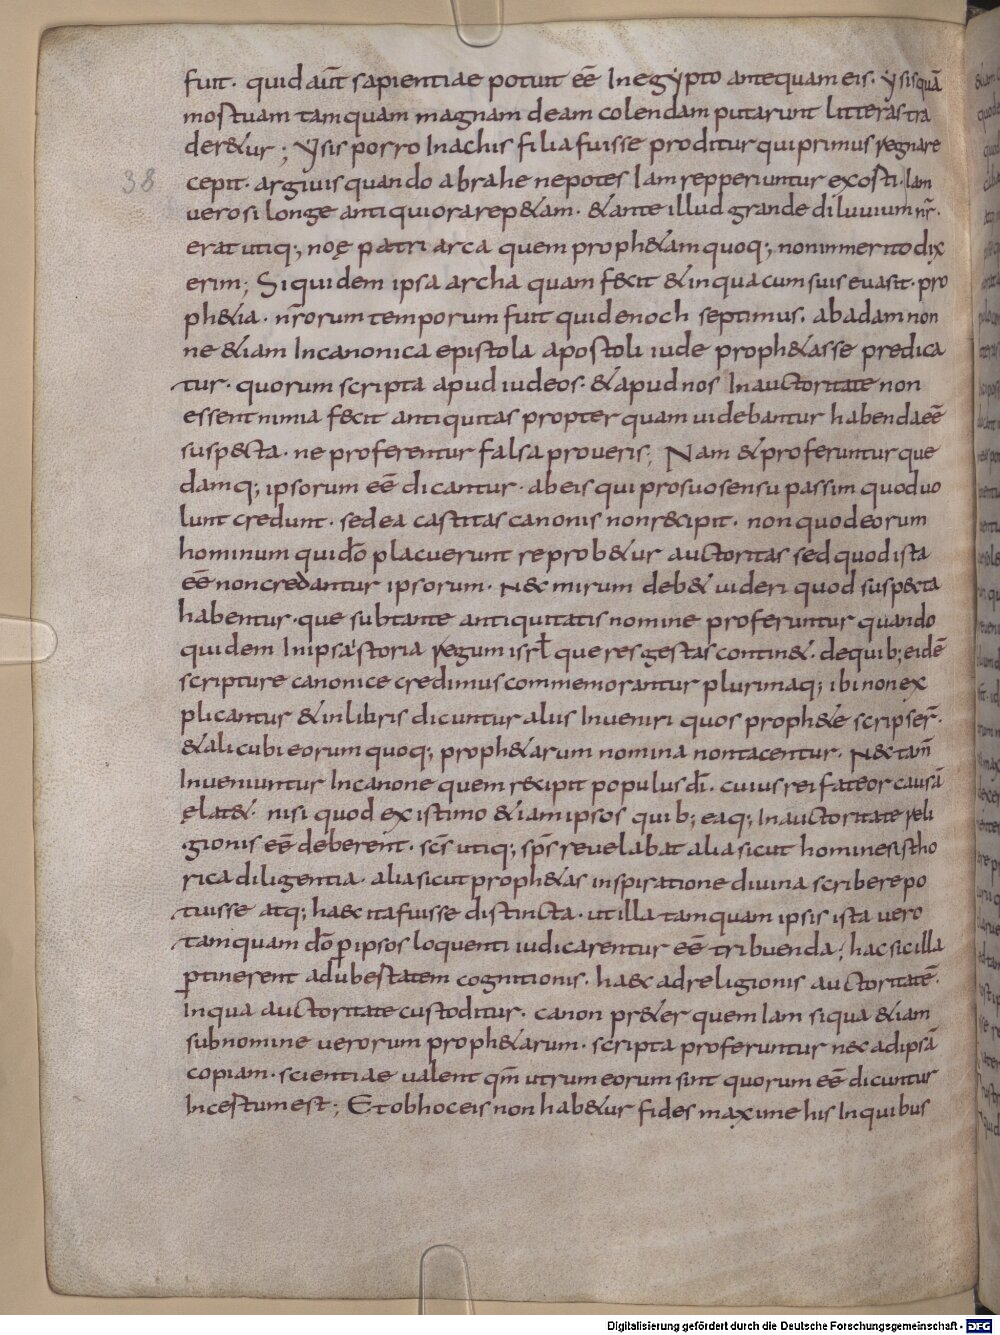 fuit. quid aūt sapientiae potuit eē In egypto antequam eis. ysis quā
mostuam tamquam magnam deam colendam putarunt litteras tra
der&ur; ysis porro Inachis filia fuisse proditur qui primus regnare
38
cepit. argiuis quando abrahe nepotes Iam repperiuntur exosti. Iam
uero si longe antiquiora rep&am. &ante illud grande diluuium nr̄.
erat utiq; noę patriarca quem proph&am quoq; non inmerito dix
erim; Siquidem ipsa archa quam fecit & in qua cum suis euasit. pro
ph&ia. nr̄orum temporum fuit quid enoch septimus. ab adam non
ne &iam In canonica epistola apostoli iude proph&asse predica
tur. quorum scripta apud iudeos. &apud nos In auctoritate non
essent nimia fecit antiquitas propter quam uidebantur habenda eē
suspecta. ne proferentur falsa pro ueris; Nam &proferuntur que
damq; ipsorum eē dicantur. ab eis qui pro suo sensu passim quod uo
lunt credunt. sed ea castitas canonis non recipit. non quod eorum
hominum qui dō placuerunt reprob&ur auctoritas sed quod ista
eē non credantur ipsorum. Nec mirum deb& uideri quod suspecta
habentur. que sub tante antiquitatis nomine proferuntur quando
quidem In ipsa storia regum isrl̄ que res gestas contin&. de quib; eidē
scripture canonice credimus commemorantur plurimaq; ibi non ex
plicantur & in libris dicuntur aliis Inueniri quos proph&e scripser̄.
&alicubi eorum quoq; proph&arum nomina non tacentur. Nec tam̄
Inueniuntur In canone quem recipit populus dī. cuius rei fateor causā
ęlat&. nisi quod existimo &iam ipsos quib; eaq; In auctoritate reli
gionis eē deberent. sc̄s utiq; sp̄s reuelabat alia sicut homines istho
rica diligentia. alia sicut proph&as inspiratione diuina scribere po
tuisse atq; haec ita fuisse distincta. ut illa tamquam ipsis ista uero
tamquam dō p̱ ipsos loquenti iudicarentur eē tribuenda; hac sic illa
p̱tinerent ad ubestatem cognitionis. haec ad religionis auctoritatē.
In qua auctoritate custoditur. canon pr&er quem Iam siqua &iam
sub nomine uerorum proph&arum. scripta proferuntur nec ad ipsā
copiam. scientiae ualent qm̄ utrum eorum sint quorum eē dicuntur
Incestum est; Et ob hoc eis non hab&ur fides maxime his In quibus
Digitalisierung gefördert durch die Deutsche Forschungsgemeinschaft - DFG